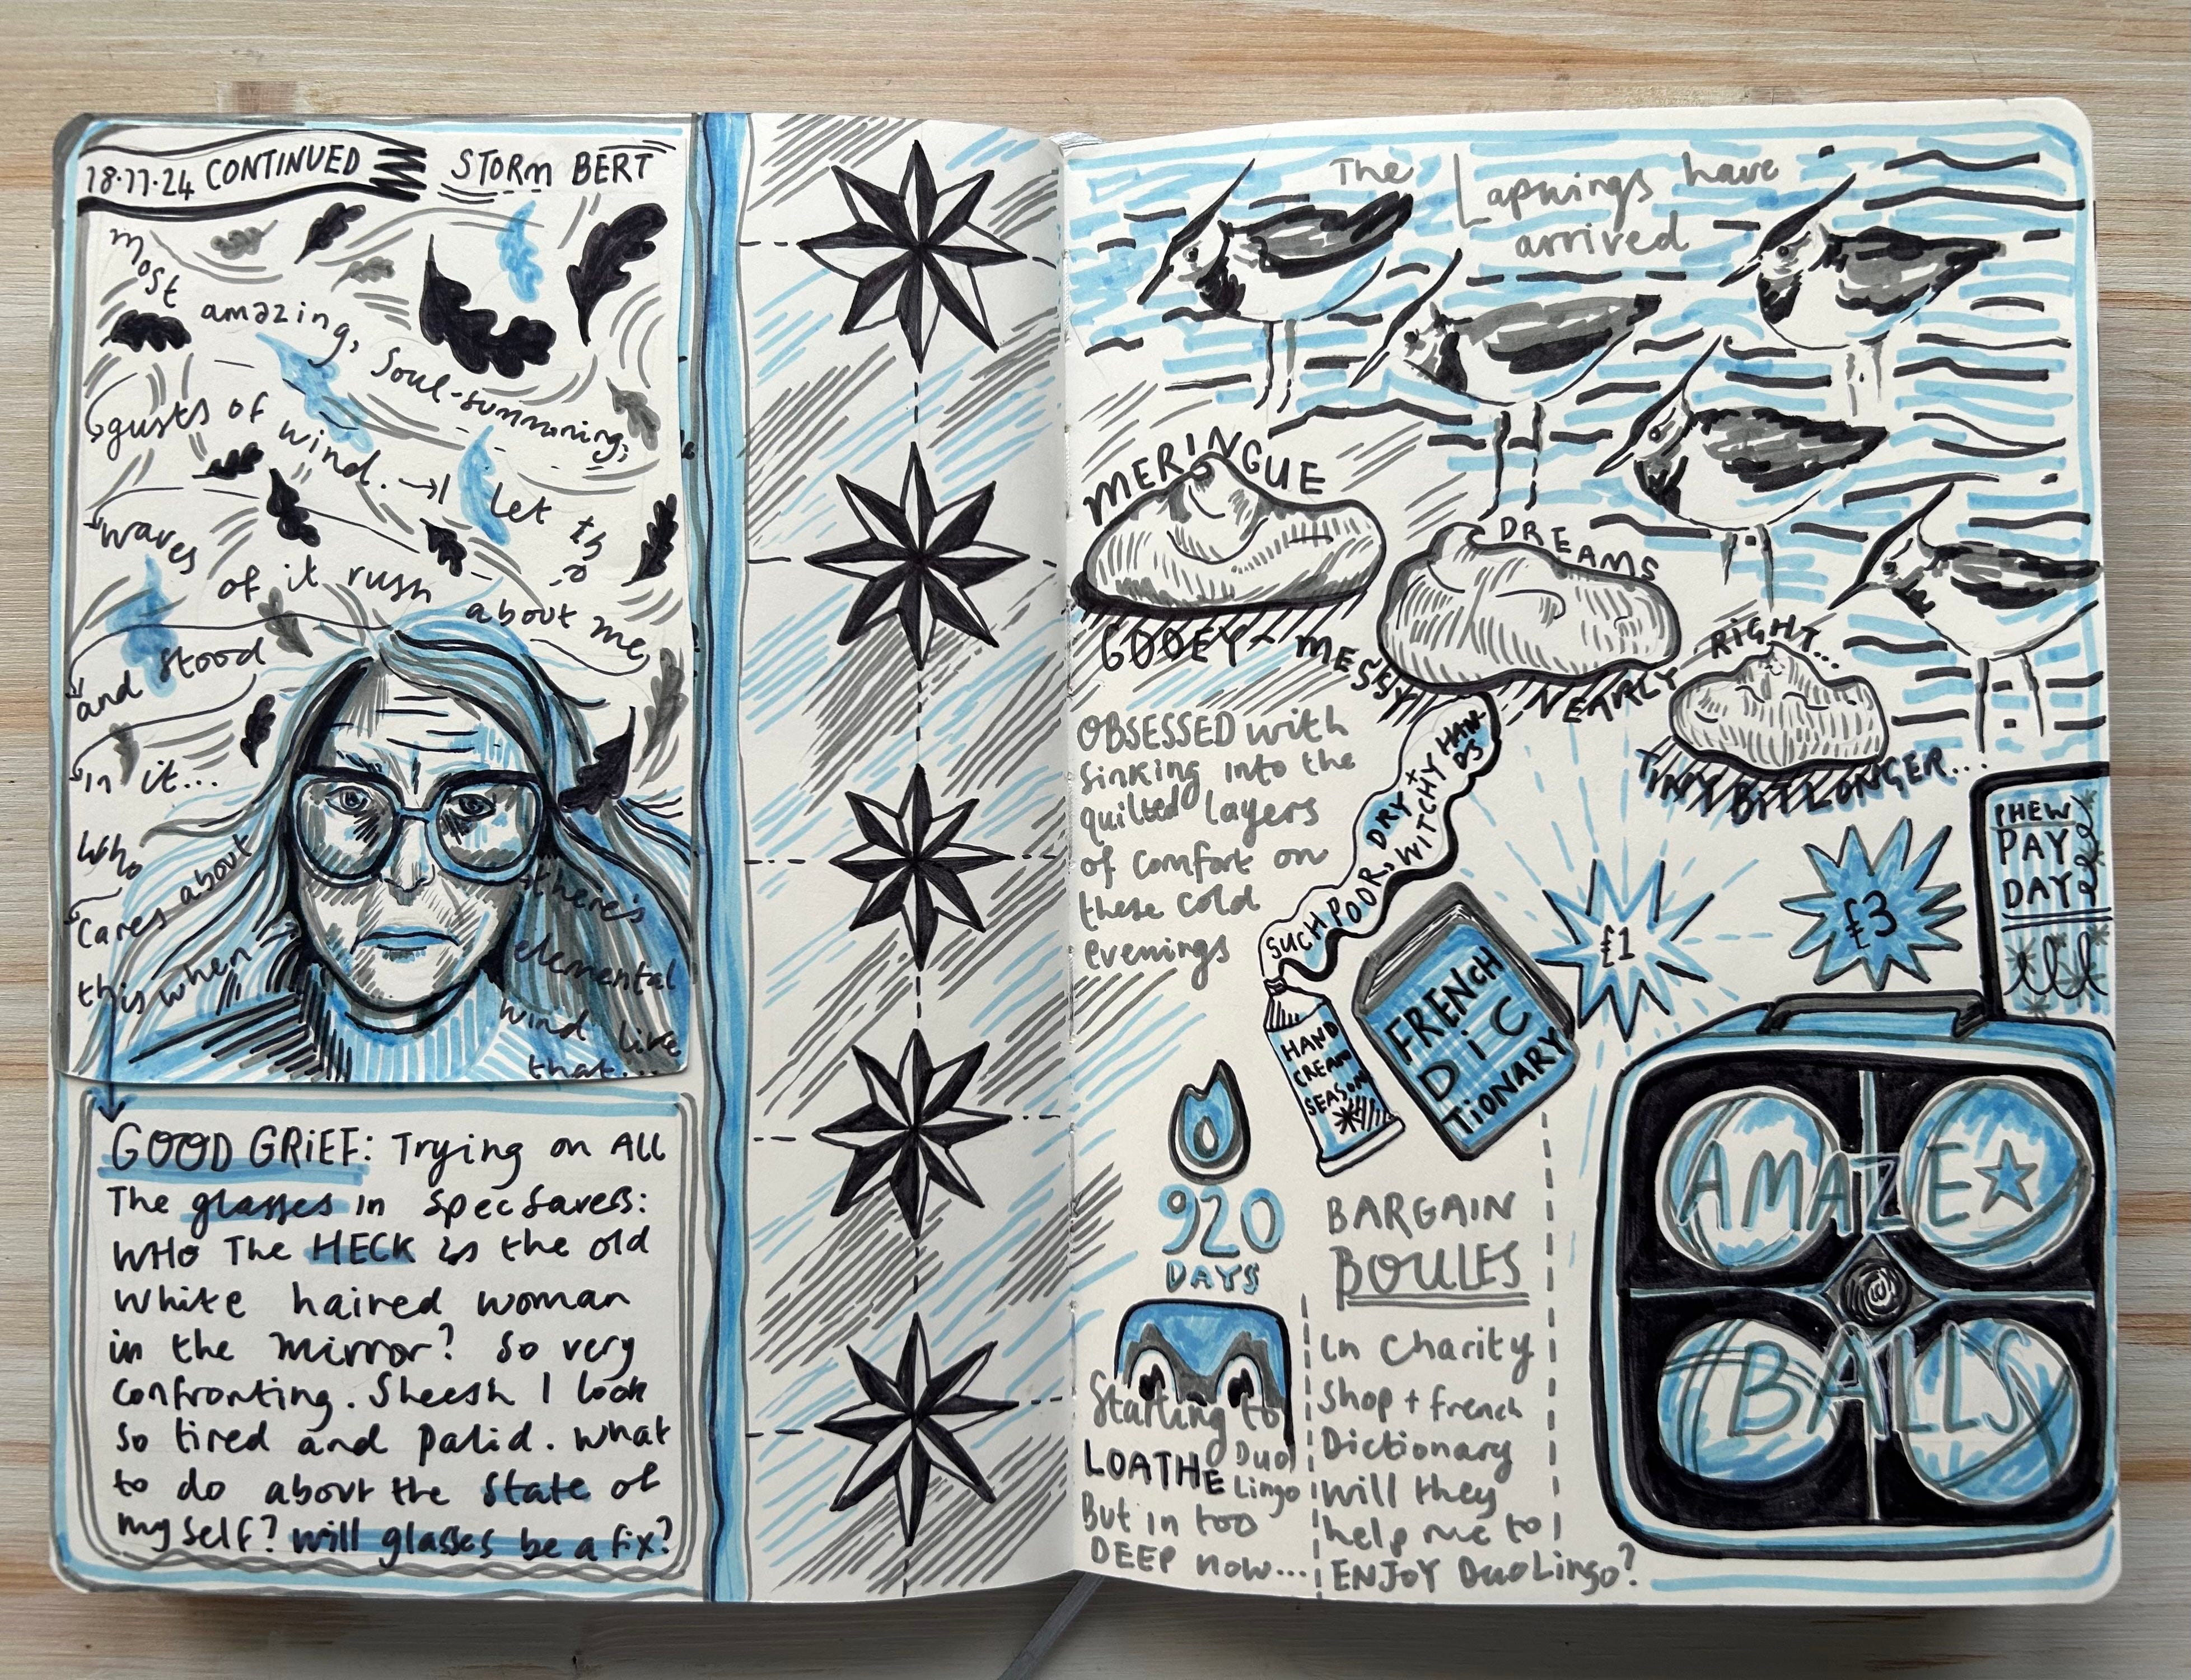 18.11.24 CONTINUED
STORM BERT
most amazing, soul-summoning,
gusts of wind. → I let th
waves of it rush about me
and stood
in it...
Who
cares about
this when
there's
elemental
wind like
that...
GOOD GRiEF: Trying on All
The glasses in SpecSavers:
WHO The HECK is the old
white haired woman
in the mirror? So very
confronting. Sheesh I look
so tired and palid. What
to do about the state of
myself? will glasses be a fix?
The Lapwings have
arrived
MERINGUE
DREAMS
GOOEY - MESSY
NEARLY
RiGHT...
TINY BiT LONGER...
OBSESSED with
sinking into the
quilted layers
of comfort on
these cold
evenings
SUCH POOR, DRY + WITCHY HAN-
DS
HAND
CREAM
SEASON
FRENCH
DiC
TiONARY
£1
£3
PHEW
PAY
DAY
920
DAYS
Starting to
LOATHE Duo
Lingo
But in too
DEEP now...
BARGAIN
BOULES
In Charity
Shop + french
Dictionary
will they
help me to
ENJOY DuoLingo?
AMAZE
BALLS